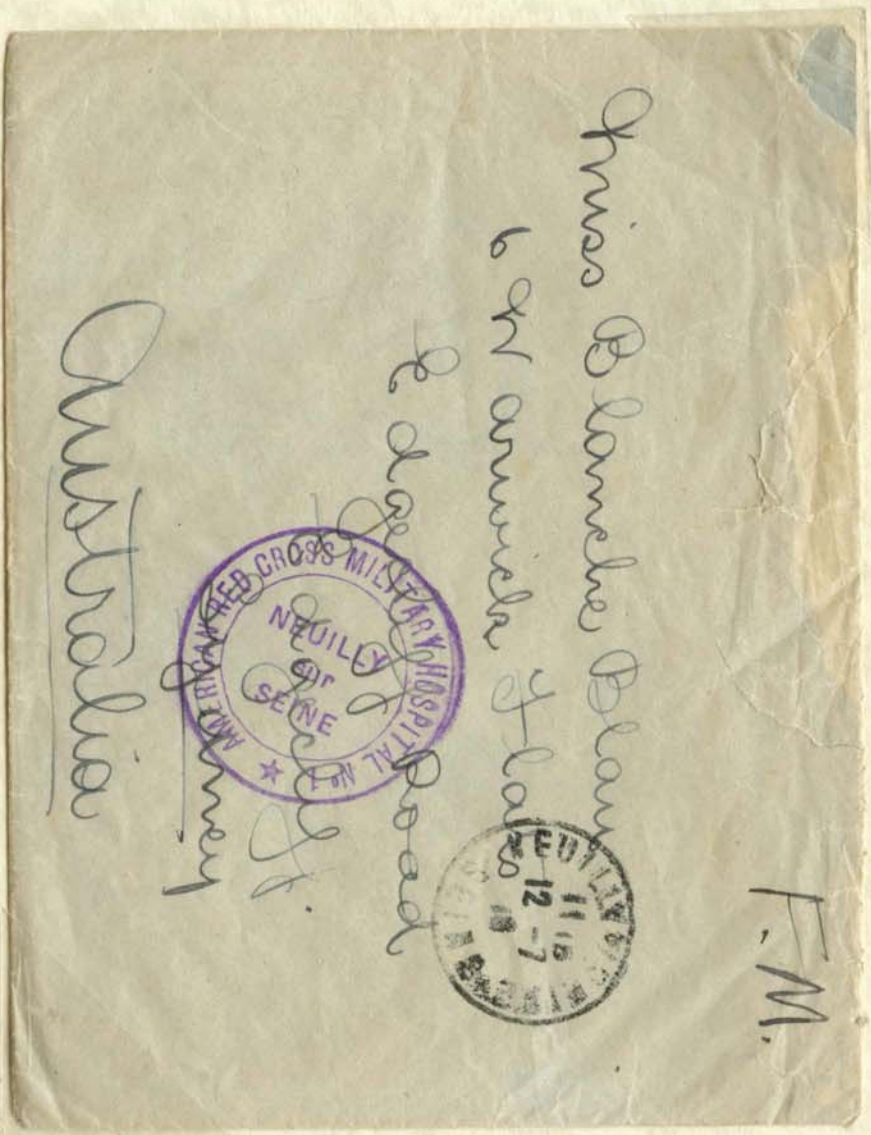 F.M.
Miss Blanche Blau
6 Warwick Flats
Edgecliff Road
Edgecliff
Sydney
Australia
AMERICAN RED CROSS MILITARY HOSPITAL No 1
NEUILLY
sur
SEINE
NEUILLY
12 -7
18